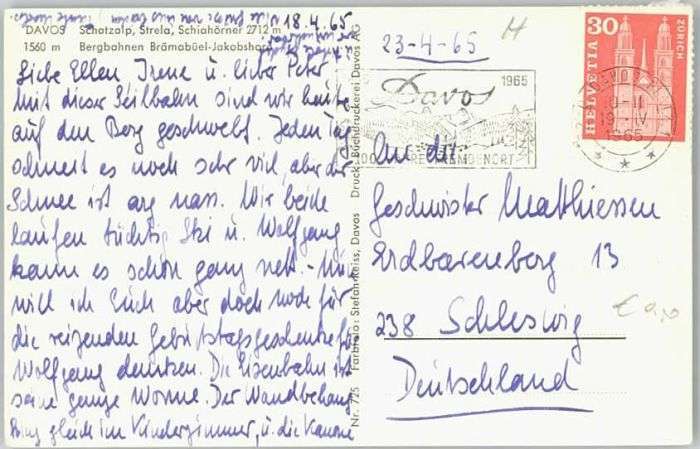 18.4.65
DAVOS Schatzalp, Strela, Schiahörner 2712 m
1560 m Bergbahnen Brämabüel-Jakobshorn
Liebe Ellen, Irene u. lieber Peter
mit dieser Seilbahn sind wir heute
auf den Berg geschwebt. Jeden Tag
schneit es noch sehr viel, aber der
Schnee ist arg nass. Wir beide
laufen tüchtig Ski u. Wolfgang
kann es schon ganz nett. Nun
will ich Euch aber doch noch für
die reizenden Geburtstagsgeschenke für
Wolfgang danken. Die Eisenbahn ist
seine ganze Wonne. Der Wandbehang
hing gleich im Kinderzimmer, u. die Kanone
Nr. 725 Farbfoto: Stefan Reiss, Davos Druck: Buchdruckerei Davos AG
23-4-65
H
1965
Davos
30
HELVETIA
ZÜRICH
10-11
19. IV
1965
An die
Geschwister Matthiessen
Erdbeerenberg 13
238 Schleswig
Deutschland